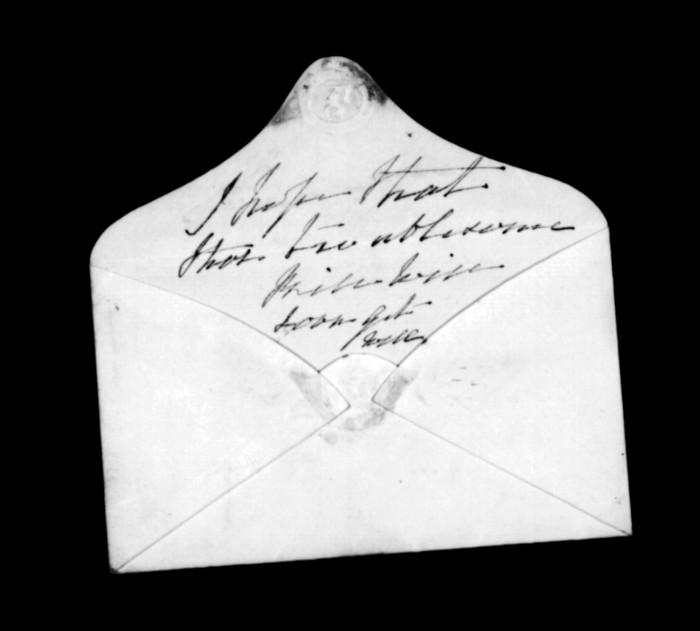 I hope that
that troublesome
will
soon get
well